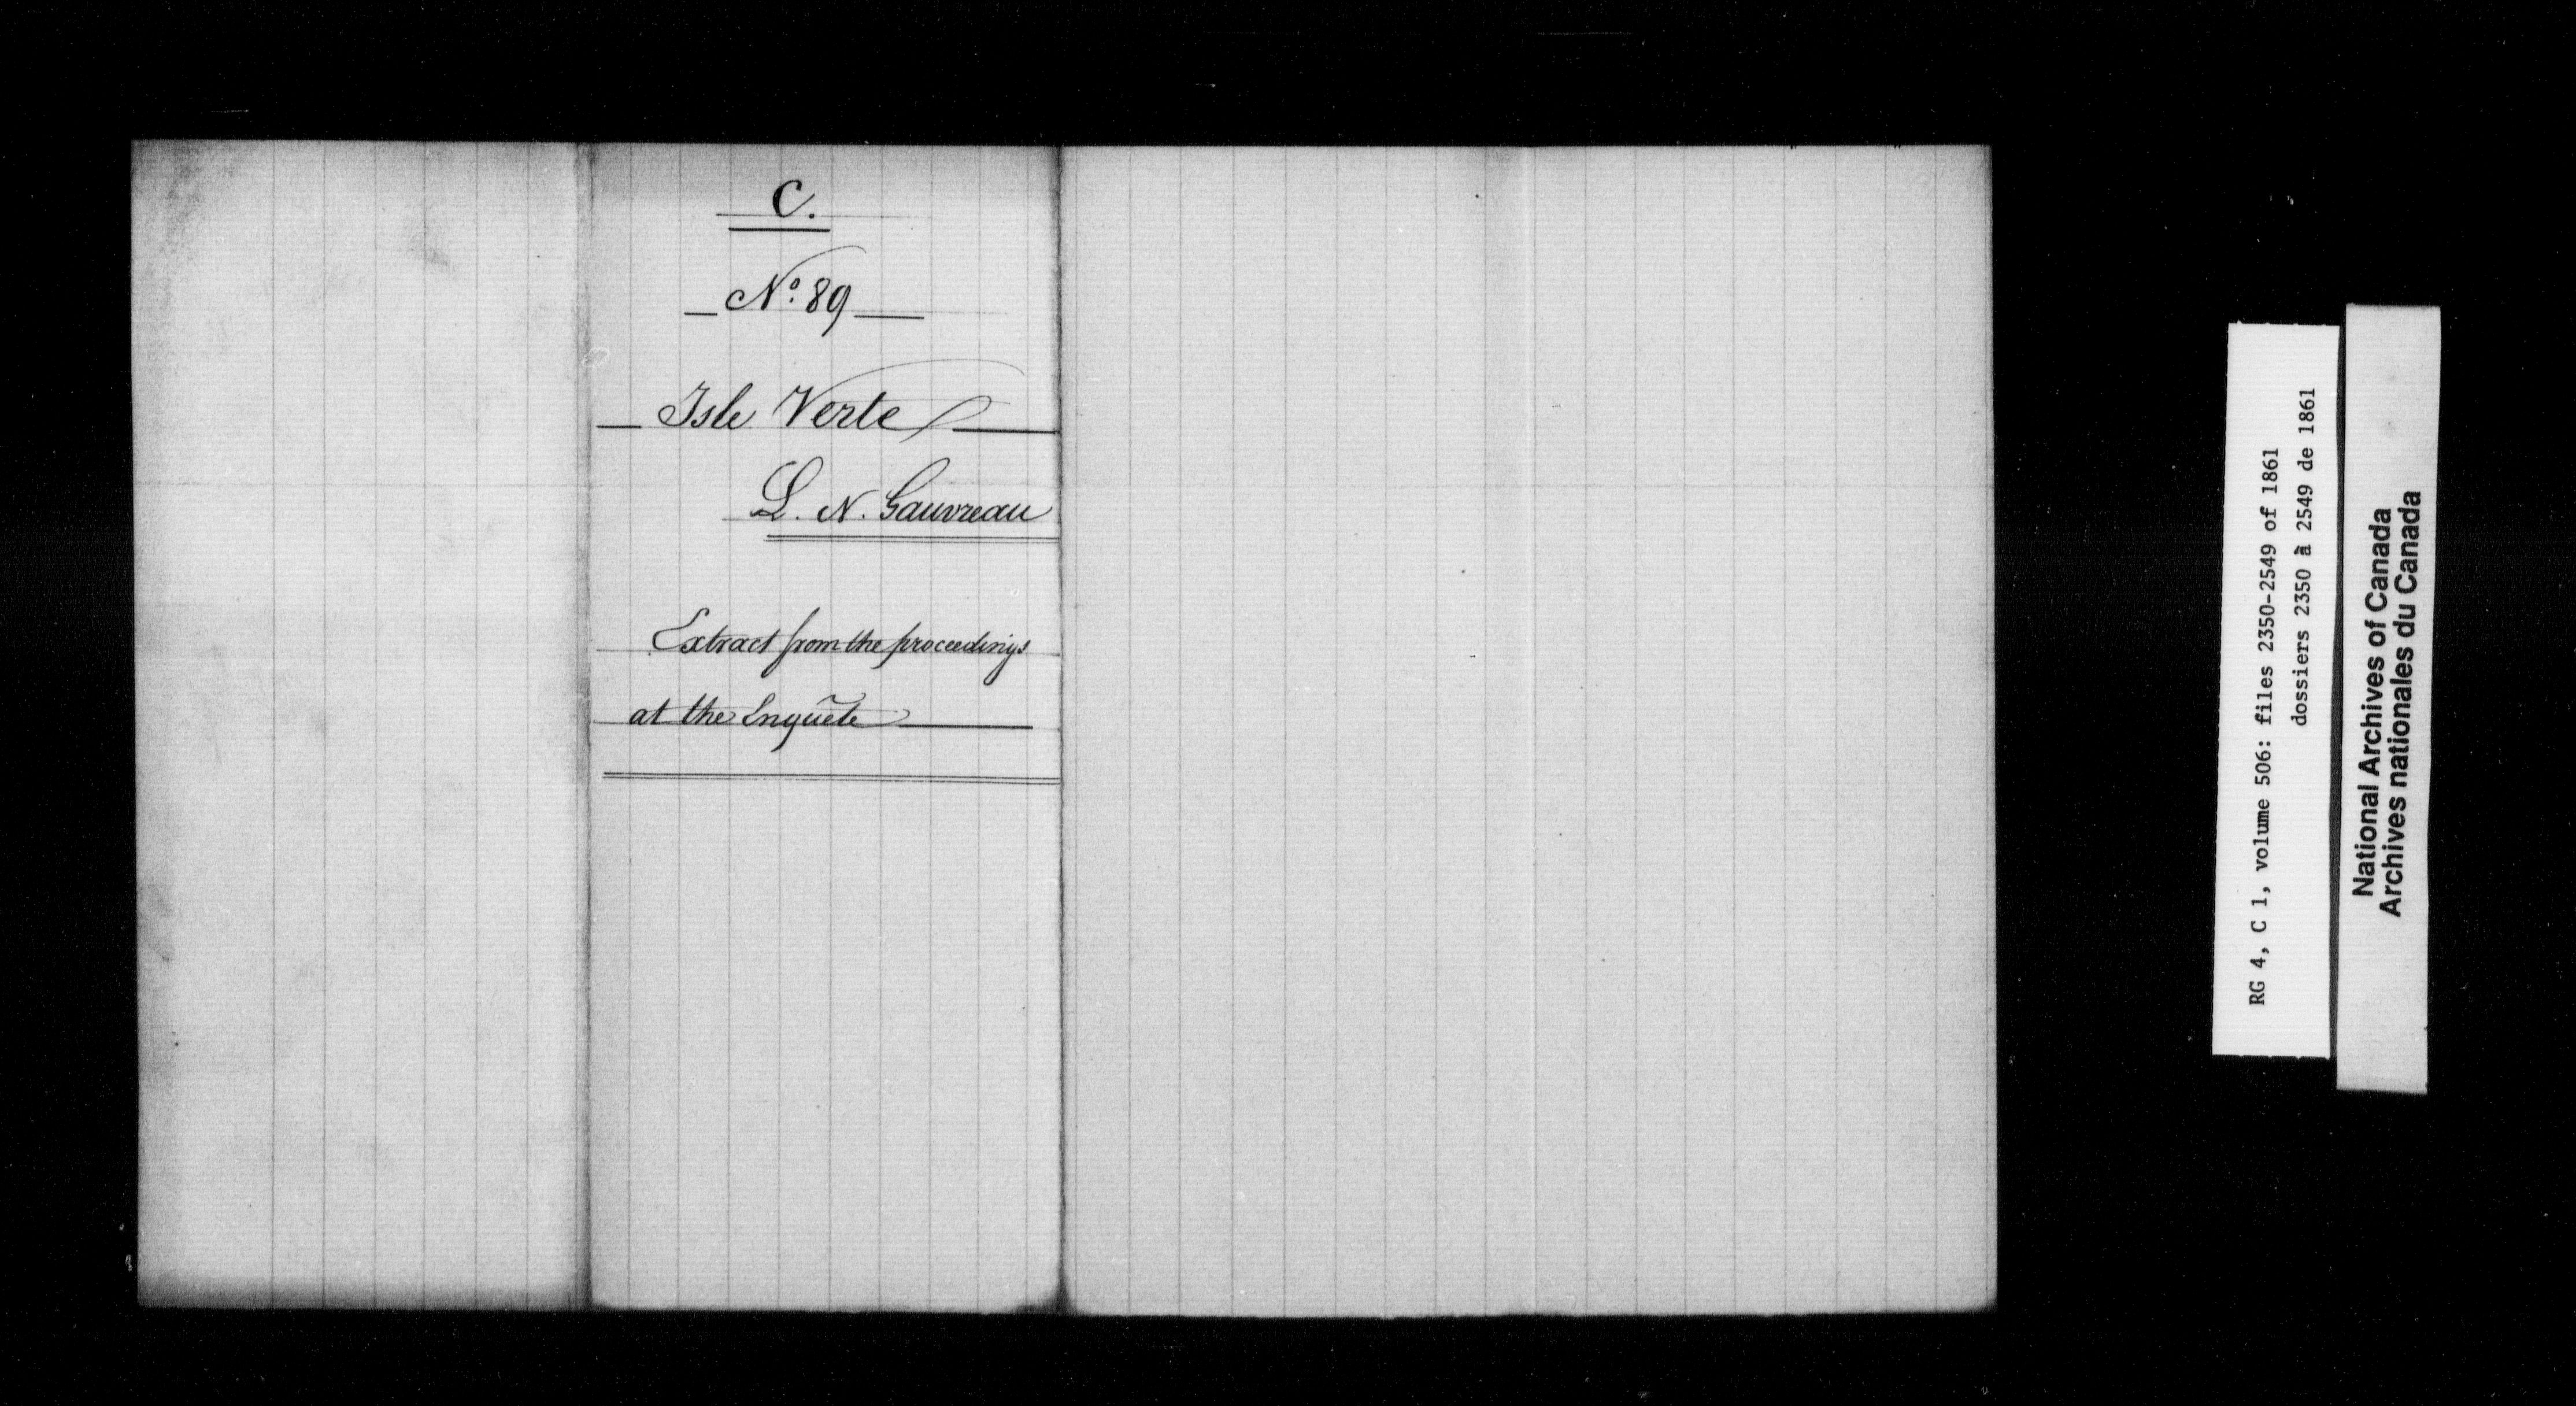 C.
No. 89
Isle Verte
L. N. Gauvreau
Extract from the proceedings
at the Enquête
RG 4, C 1, volume 506: files 2350-2549 of 1861
dossiers 2350 à 2549 de 1861
National Archives of Canada
Archives nationales du Canada